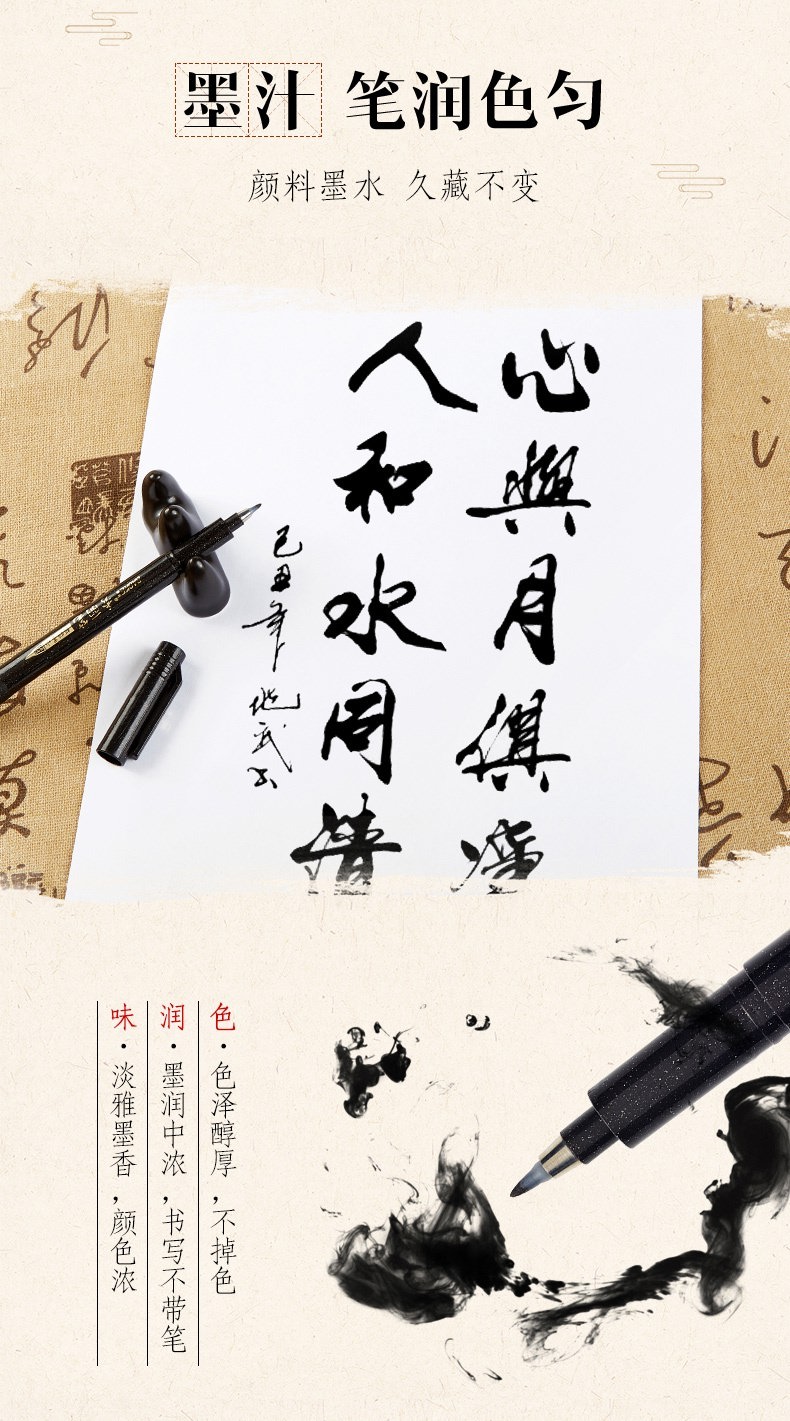 墨汁 笔润色匀
颜料墨水 久藏不变
心與月俱
人和水同清
己丑年
色·色泽醇厚,不掉色
润·墨润中浓,书写不带笔
味·淡雅墨香,颜色浓